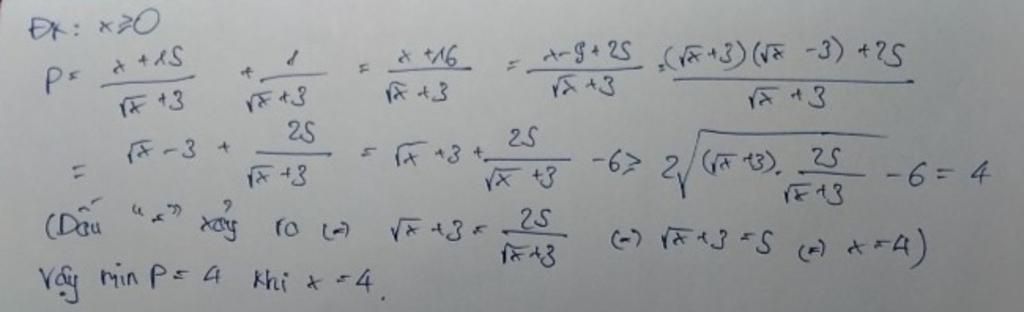 ĐK: x ≥ 0
P = \frac{x + 15}{\sqrt{x} + 3} + \frac{1}{\sqrt{x} + 3} = \frac{x + 16}{\sqrt{x} + 3} = \frac{x - 9 + 25}{\sqrt{x} + 3} = \frac{(\sqrt{x} + 3)(\sqrt{x} - 3) + 25}{\sqrt{x} + 3}
= \sqrt{x} - 3 + \frac{25}{\sqrt{x} + 3} = \sqrt{x} + 3 + \frac{25}{\sqrt{x} + 3} - 6 ≥ 2\sqrt{(\sqrt{x} + 3) . \frac{25}{\sqrt{x} + 3}} - 6 = 4
(Dấu "=" xảy ra (=) \sqrt{x} + 3 = \frac{25}{\sqrt{x} + 3} (=) \sqrt{x} + 3 = 5 (=) x = 4)
Vậy min P = 4 khi x = 4.